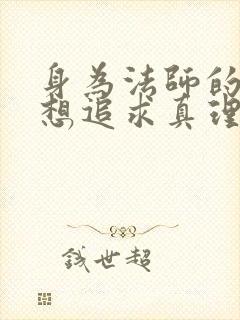 身為法師的
想追求真理
錢世超